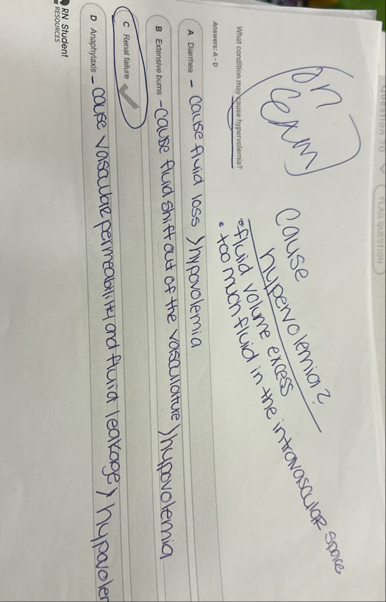 PLAY QUESTION
on
exam
What condition may cause hypervolemia?
Cause
hypervolemia?
• fluid volume excess
• too much fluid in the intravascular space
Answers: A - D
A Diarrhea - cause fluid loss > hypovolemia
B Extensive burns - cause fluid shift out of the vasculature > hypovolemia
C Renal failure
D Anaphylaxis - cause vascular permeability and fluid leakage > hypovolem
RN Student
RESOURCES